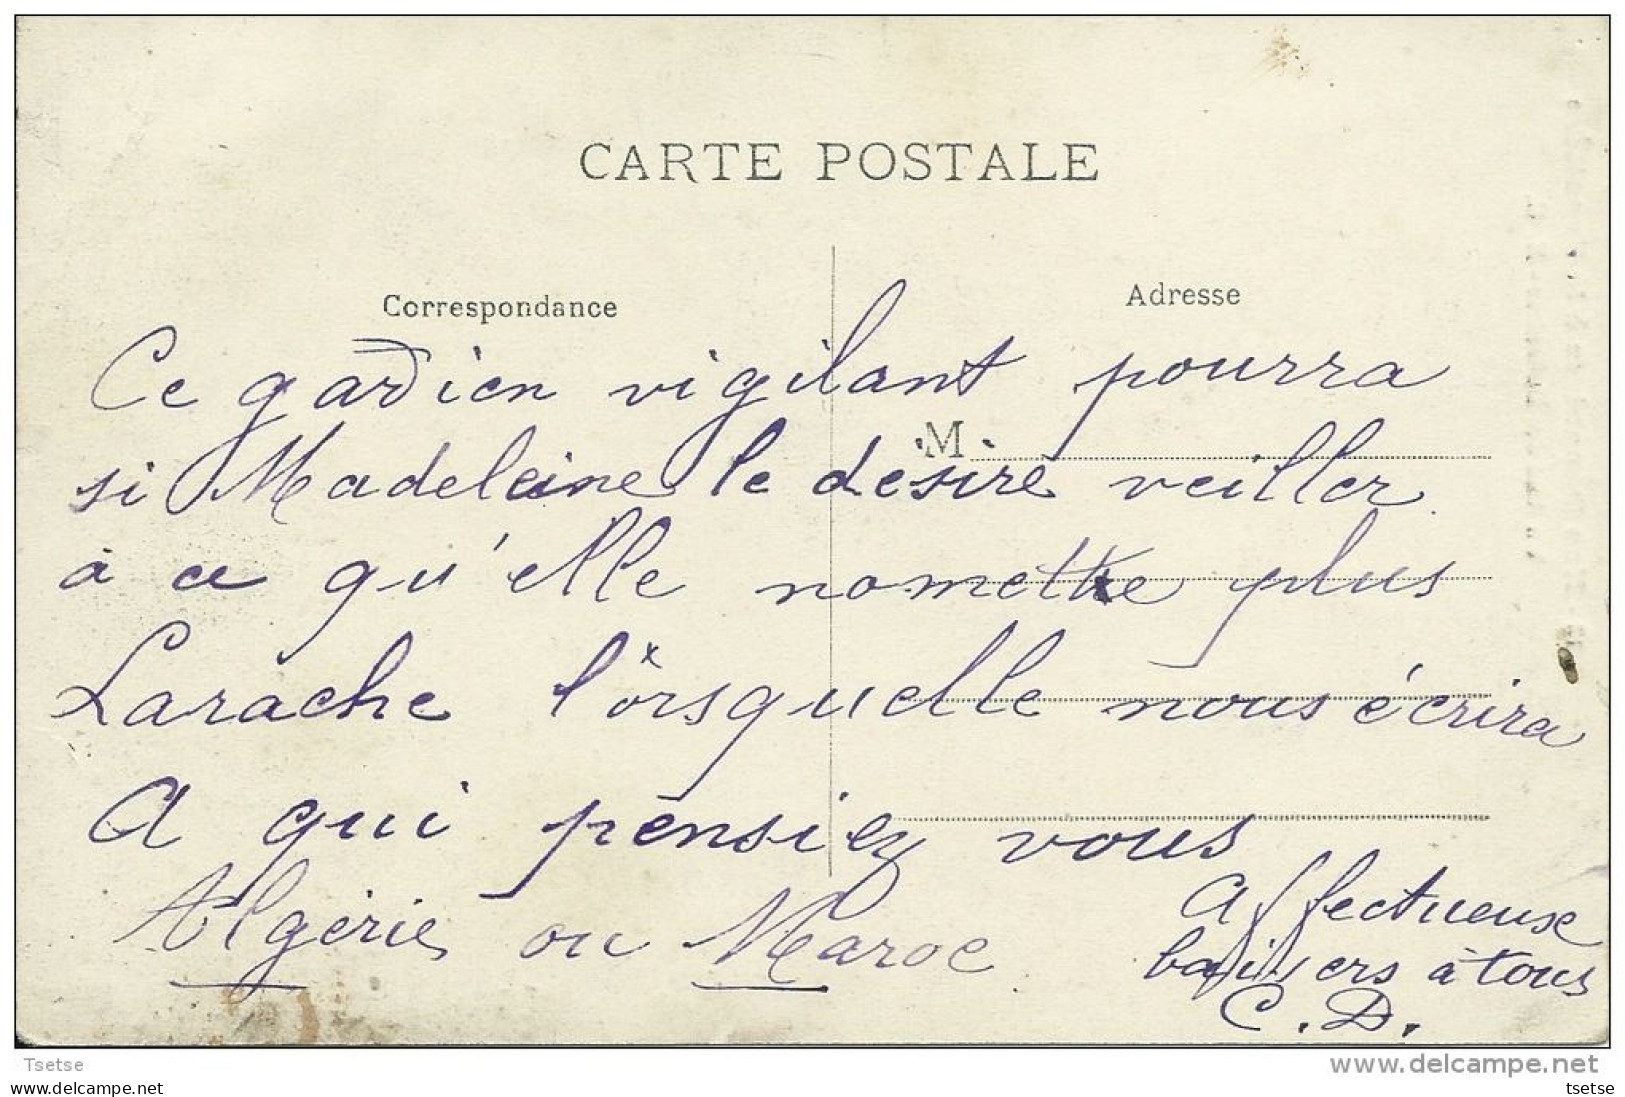 CARTE POSTALE
Correspondance
Adresse
Ce gardien vigilant pourra
M
si Madeleine le desire veiller
à ce qu'elle nomette plus
Larache lorsquelle nous écrira
A qui pensiez vous
Algérie ou Maroc
Affectueuse
baisers à tous
C. D.
Tsetse
www.delcampe.net
tsetse
tsetse